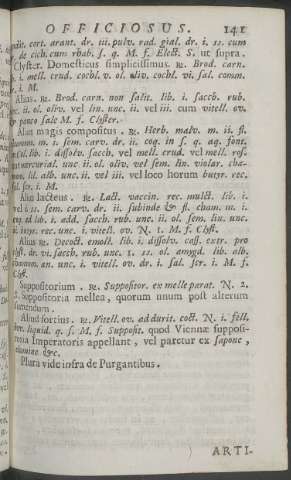 OFFICIOSUS. 141
cort. arant. dr. iii. pulv. rad. gial. dr. i. ss. cum
de cich. cum rhab. s. q. M. f. Elect. S. ut supra.
Clyster. Domesticus simplicissimus. ℞. Brod. carn.
i. mell. crud. cochl. v. ol. oliv. cochl. vi. sal. comm.
i. M.
Alias. ℞. Brod. carn. non salit. lib. i. sacch. rub.
ii. ol. oliv. vel lin. unc. ii. vel iii. cum vitell. ov.
pauco sale M. f. Clyster.
Aliud magis compositus. ℞. Herb. malv. m. ii. fl.
m. i. sem. carv. dr. ii. coq. in s. q. aq. font.
Col. lib. i. dissolv. sacch. vel mell. crud. vel mell.
mercurial. unc. ii. ol. oliv. vel sem. lin. violar. cha-
mom. lil. alb. unc. ii. vel iii. vel loco horum butyr. rec.
scr. i. M.
Alio lacteus. ℞. Lact. vaccin. rec. mulct. lib. i.
vel i. ss. sem. carv. dr. ii. subinde & fl. cham. m. i.
ad lib. i. add. sacch. rub. unc. ii. ol. sem. lin. unc.
ii. butyr. rec. unc. i. vitell. ov. N. 1. M. f. Clyst.
Alius ℞. Decoct. emoll. lib. i. dissolv. cass. extr. pro
clyst. dr. vi. sacch. rub. unc. 1. ss. ol. amygd. lib. alb.
chamom. an. unc. i. vitell. ov. dr. i. sal. scr. i. M. f.
Clyst.
Suppositorium. ℞. Suppositor. ex melle parat. N. 2.
S. Suppositoria mellea, quorum unum post alterum
sumendum.
Aliud fortius. ℞. Vitell. ov. ad durit. coct. N. i. fell.
liquid. q. s. M. f. Supposit. quod Viennæ supposi-
toria Imperatoris appellant, vel paretur ex sapone,
&c.
Plura vide infra de Purgantibus.
ARTI-